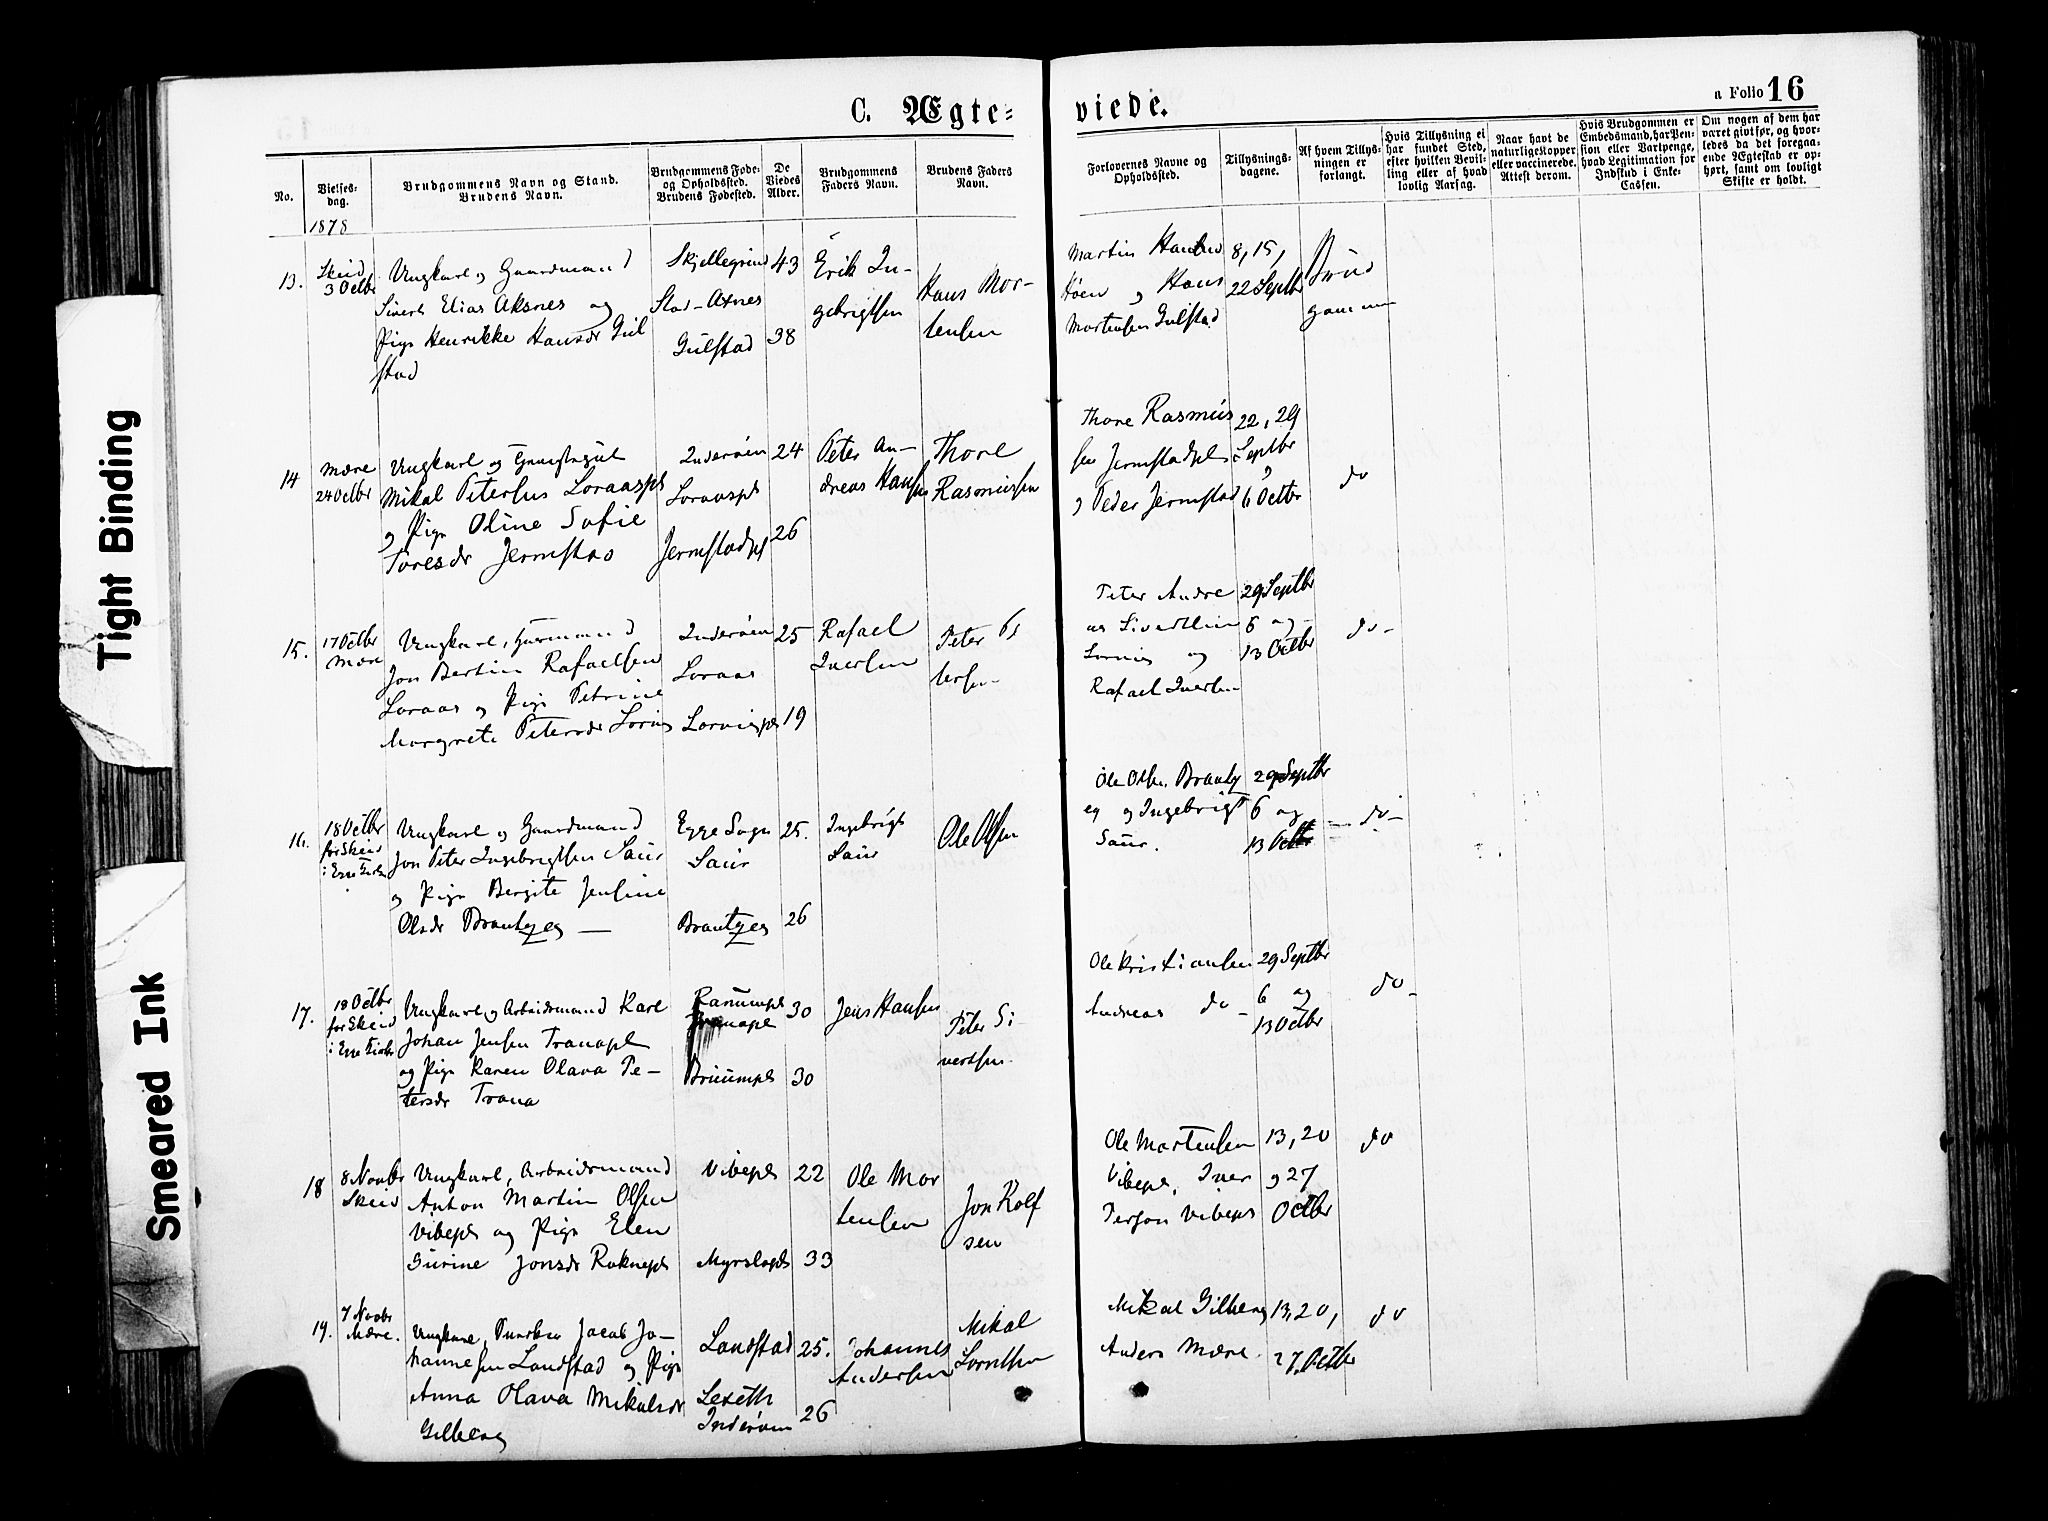 C. Ægte=
viede.
a Folio 16
No.
Vielses-
dag.
Brudgommens Navn og Stand.
Brudens Navn.
Brudgommens Føde-
og Opholdssted.
Brudens Fødested.
De
Viedes
Alder.
Brudgommens
Faders Navn.
Brudens Faders
Navn.
Forlovernes Navne og
Opholdssted.
Tillysnings-
dagene.
Af hvem Tillys-
ningen er
forlangt.
Hvis Tillysning ei
har fundet Sted,
efter hvilken Bevil-
ling eller af hvad
lovlig Aarsag.
Naar havt de
naturlige Kopper
eller vaccinerede.
Attest derom.
Hvis Brudgommen er
Embedsmand, har Pen-
sion eller Vartpenge,
hvad Legitimation for
Indskud i Enke-
Cassen.
Om nogen af dem har
været givt før, og hvor-
ledes da det foregaa-
ende Ægteskab er op-
hørt, samt om lovligt
Skifte er holdt.
1878
13.
Skeid
3 Octbr
Ungkarl og Gaardmand
Sivert Elias Aksnes og
Pige Henrikke Hansdr Gul
stad
Skjellegrind
Stad-Axnes
Gulstad
43
38
Erik In-
gebrigtsen
Hans Mor-
tensen
Martin
Høen og Hans
Mortensen Gulstad
8, 15,
22 Septbr
Brud
gommen
14
Mære
24 Octbr
Ungkarl og
Mikal Petersen Loraaspl
og Pige Oline Sofie
Toresdr Jermstad
Inderøen
Loraaspl
Jermstadpl
24
26
Peter An-
dreas Hansen
Thore
Rasmussen
Thore Rasmus
sen Jermstadpl
og Peder Jermstad
22, 29
Septbr
6 Octbr
do
15.
17 Octbr
Mære
Ungkarl, Gaarmand
Jon Bertin Rafaelsen
Loraas og Pige Petrine
Margrete Petersdr Lorvig
Inderøen
Loraas
Lorvigpl
25
19
Rafael
Iversen
Peter Pe
tersen
Peter Andre
as
Lorvig og
Rafael Iversen
29 Septbr
6 og
13 Octbr
do-
16.
18 Octbr
for Skeid
i Egge Kirke
Ungkarl og Gaardmand
Jon Peter Ingebrigtsen Saur
og Pige Bergite Jensine
Olsdr Brantyeg —
Egge Sogn
Saur
Brantyeg
25.
26
Ingebrigt
Saur
Ole Olsen
Ole Olsen Branty
eg og Ingebrigt
Saur.
29 Septbr
6 og
13 Octbr
— do-
17.
18 Octbr
for Skeid
i Egge Kirke
Ungkarl og Arbeidsmand Karl
Johan Jensen Tranapl
og Pige Karen Olava Pe-
tersdr Trana
Ranumpl
Tranapl
30
30
Jens Hansen
Peter Si
vertsen.
Ole Kristiansen
Andreas do -
29 Septbr
6 og
13 Octbr
do-
18
8 Novbr
Skeid
Ungkarl, Arbeidsmand
Anton Martin Olsen
Vibepl og Pige Elen
Gurine Jonsdr Roknepl
Vibepl
22
33
Ole Mor
tensen
Jon Rolf
sen
Ole Mortensen
Vibepl, Iver
Vibepl
13, 20
og 27
Octbr
do
19.
7 Novbr
Mære.
Ungkarl, Jacob Jo-
hannesen Landstad og Pige
Anna Olava Mikalsdr
Gilberg
Landstad
Inderøen
25.
26
Johannes
Andersen
Mikal
Mikal Gilberg
Anders Mære.
13, 20,
27. Octbr
do
Tight Binding
Smeared Ink